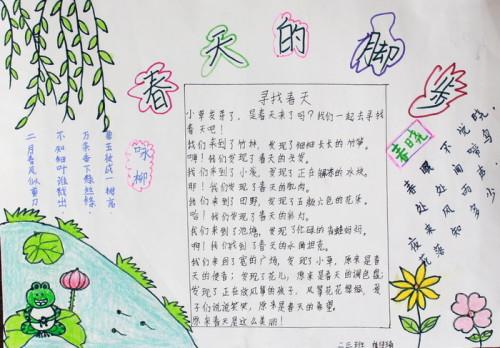 春天的脚步
咏柳
碧玉妆成一树高
万条垂下绿丝绦.
不知细叶谁裁出.
二月春风似剪刀
寻找春天
小草发芽了，是春天来了吗？我们一起去寻找
春天吧！
我们来到了竹林，发现了细细长长的竹笋。
啊！我们发现了春天的
我们来到了小溪，发现了正在 的冰块。
那！我们发现了春天的肌肉。
我们来到了田野，发现了五颜六色的花朵。
哈！我们发现了春天的
我们来到了池塘，发现了忙碌的青蛙好妈。
啊！我们找到了春天的
我们来到了宽的广场，发现了小草，原来是春天
的使者；发现了花儿，原来是春天的调色盘；
发现了正在放风筝的孩子，风筝花花绿绿，孩
子们说说笑笑，原来是春天的希望。
原来春天是这么美丽！
春晓
春眠不觉晓.
处处闻啼鸟
夜来风雨声
花落知多少
二 班